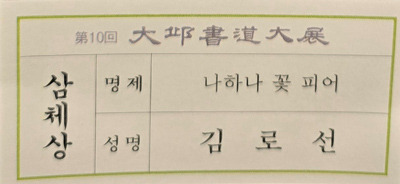 第10回 大邱書道大展
삼체상
명제 나하나 꽃 피어
성명 김로선